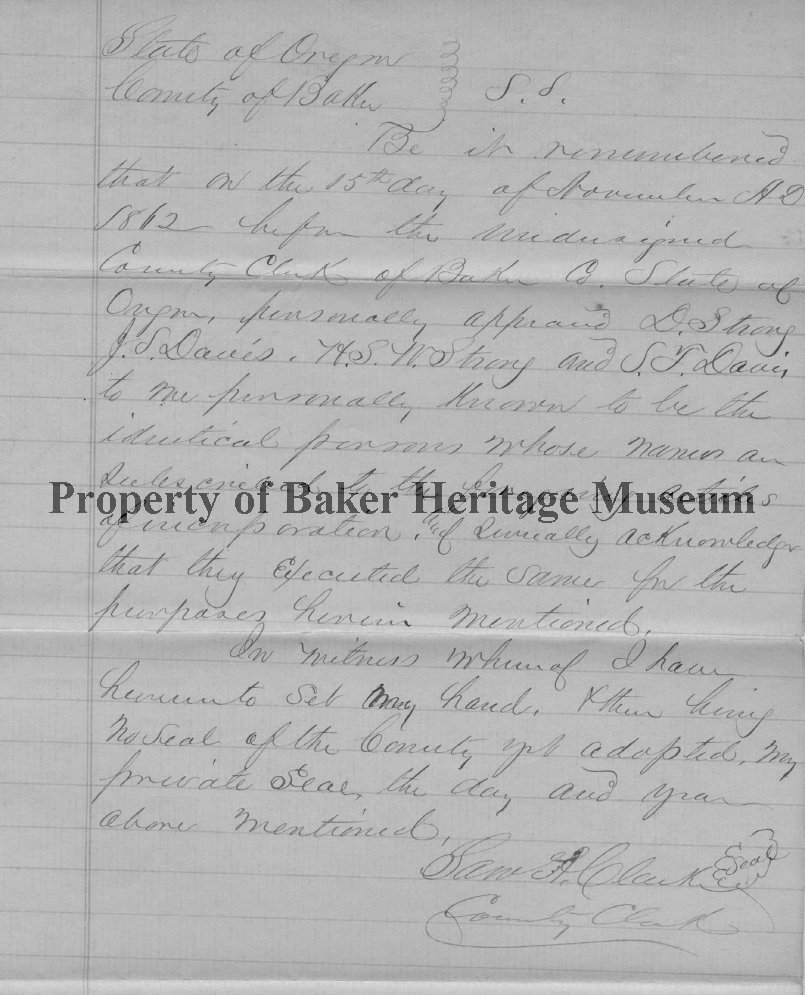 State of Oregon
County of Baker } S. S.
Be it remembered
that on the 15th day of November A D
1862 before the undersigned
County Clerk of Baker Co. State of
Oregon, personally appeard D. Strong
J. S. Davis, H. S. W. Strong and S. T. Davis
to me personally known to be the
identical persons whose names are
subscribed to the foregoing articles
Property of Baker Heritage Museum
of incorporation, severally acknowledge
that they Executed the same for the
purposes herein mentioned.
In witness whereof I have
hereunto set my hand, & there being
no seal of the County yet adopted, my
private Seal, the day and year
above mentioned,
Saml F. Clarke Seal
County Clerk